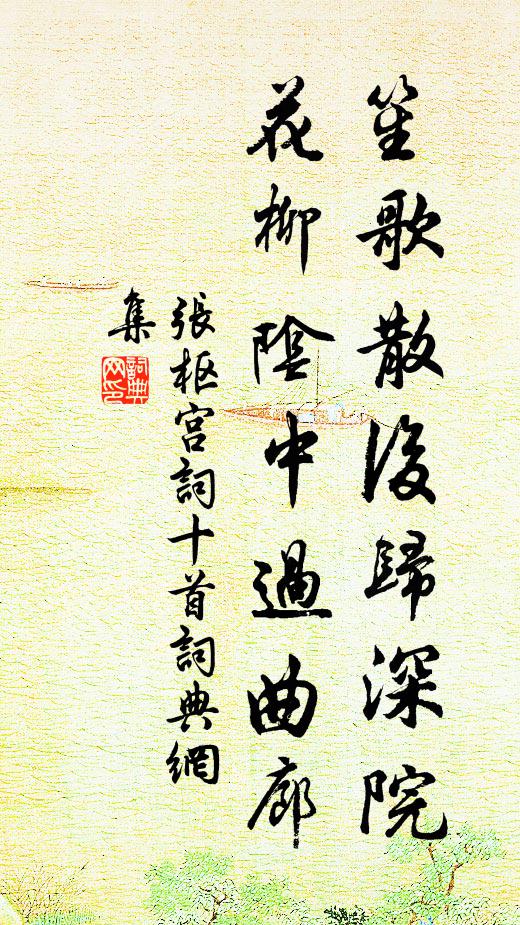 笙歌散後歸深院
花柳陰中過曲廊
張枢宫詞十首詞典網
集
詞典
网印